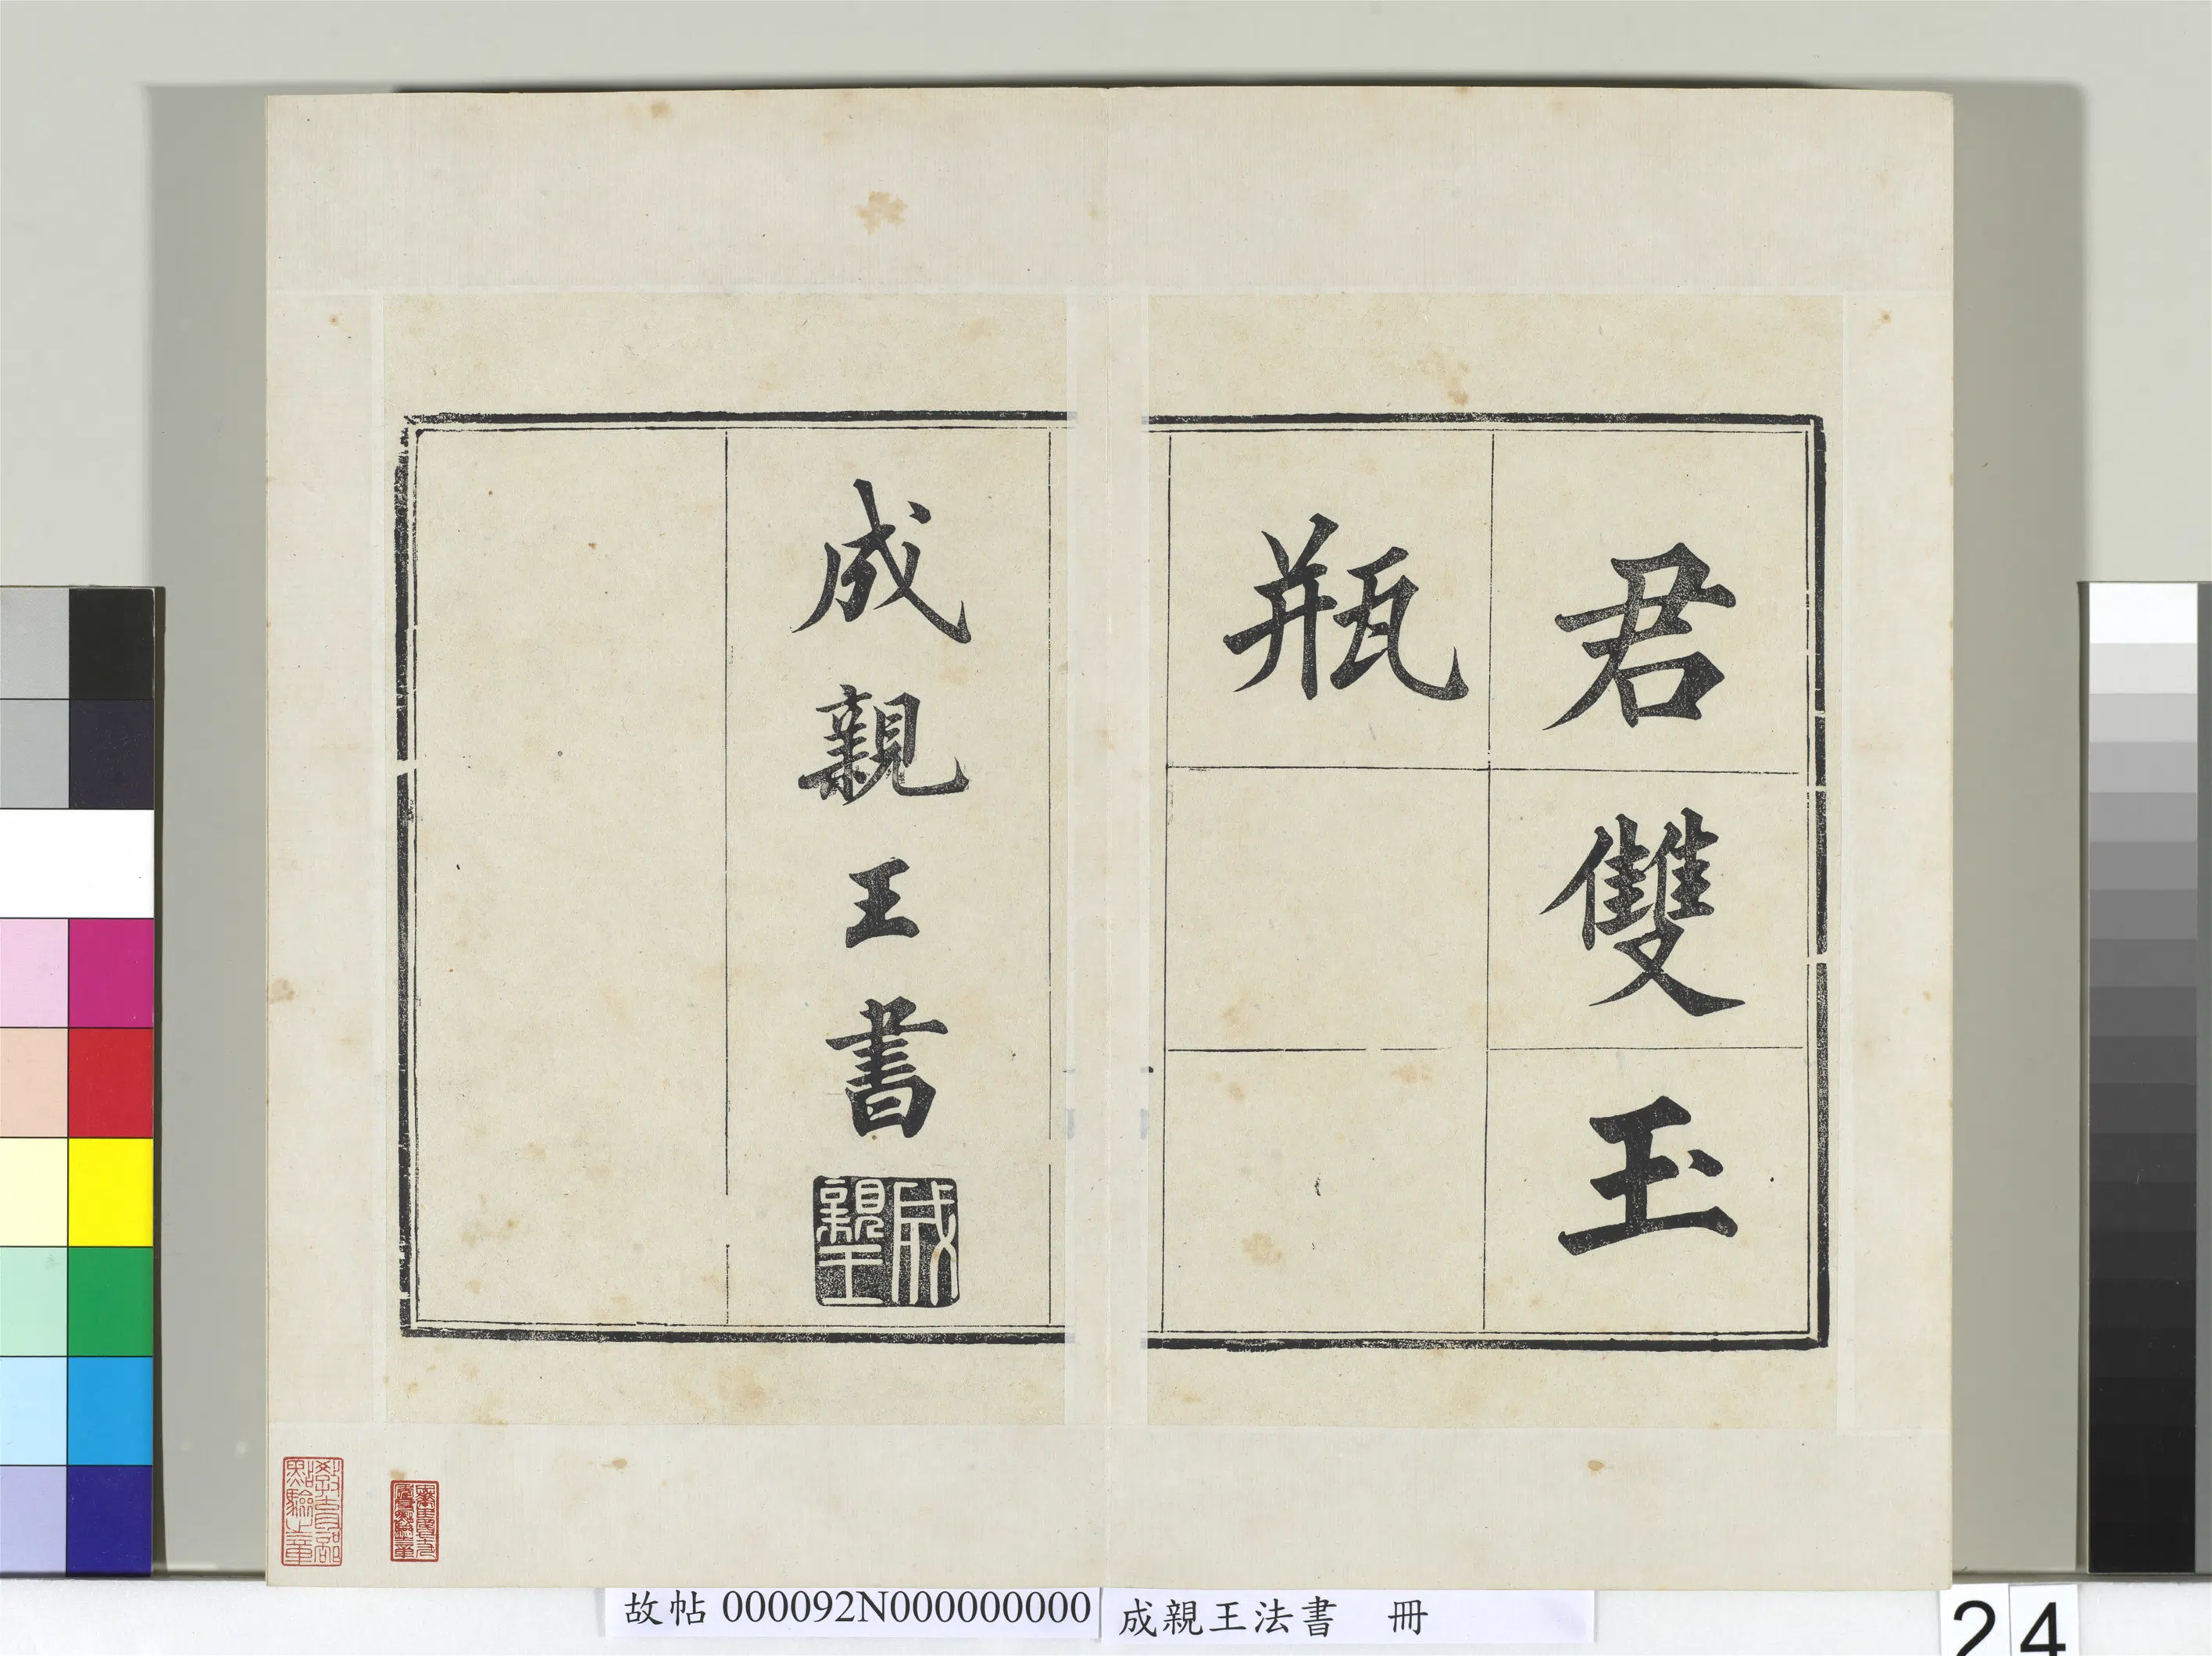 君雙玉
瓶
成親王書
成親王
教育部點驗之章
故帖 000092N000000000
成親王法書 冊
24